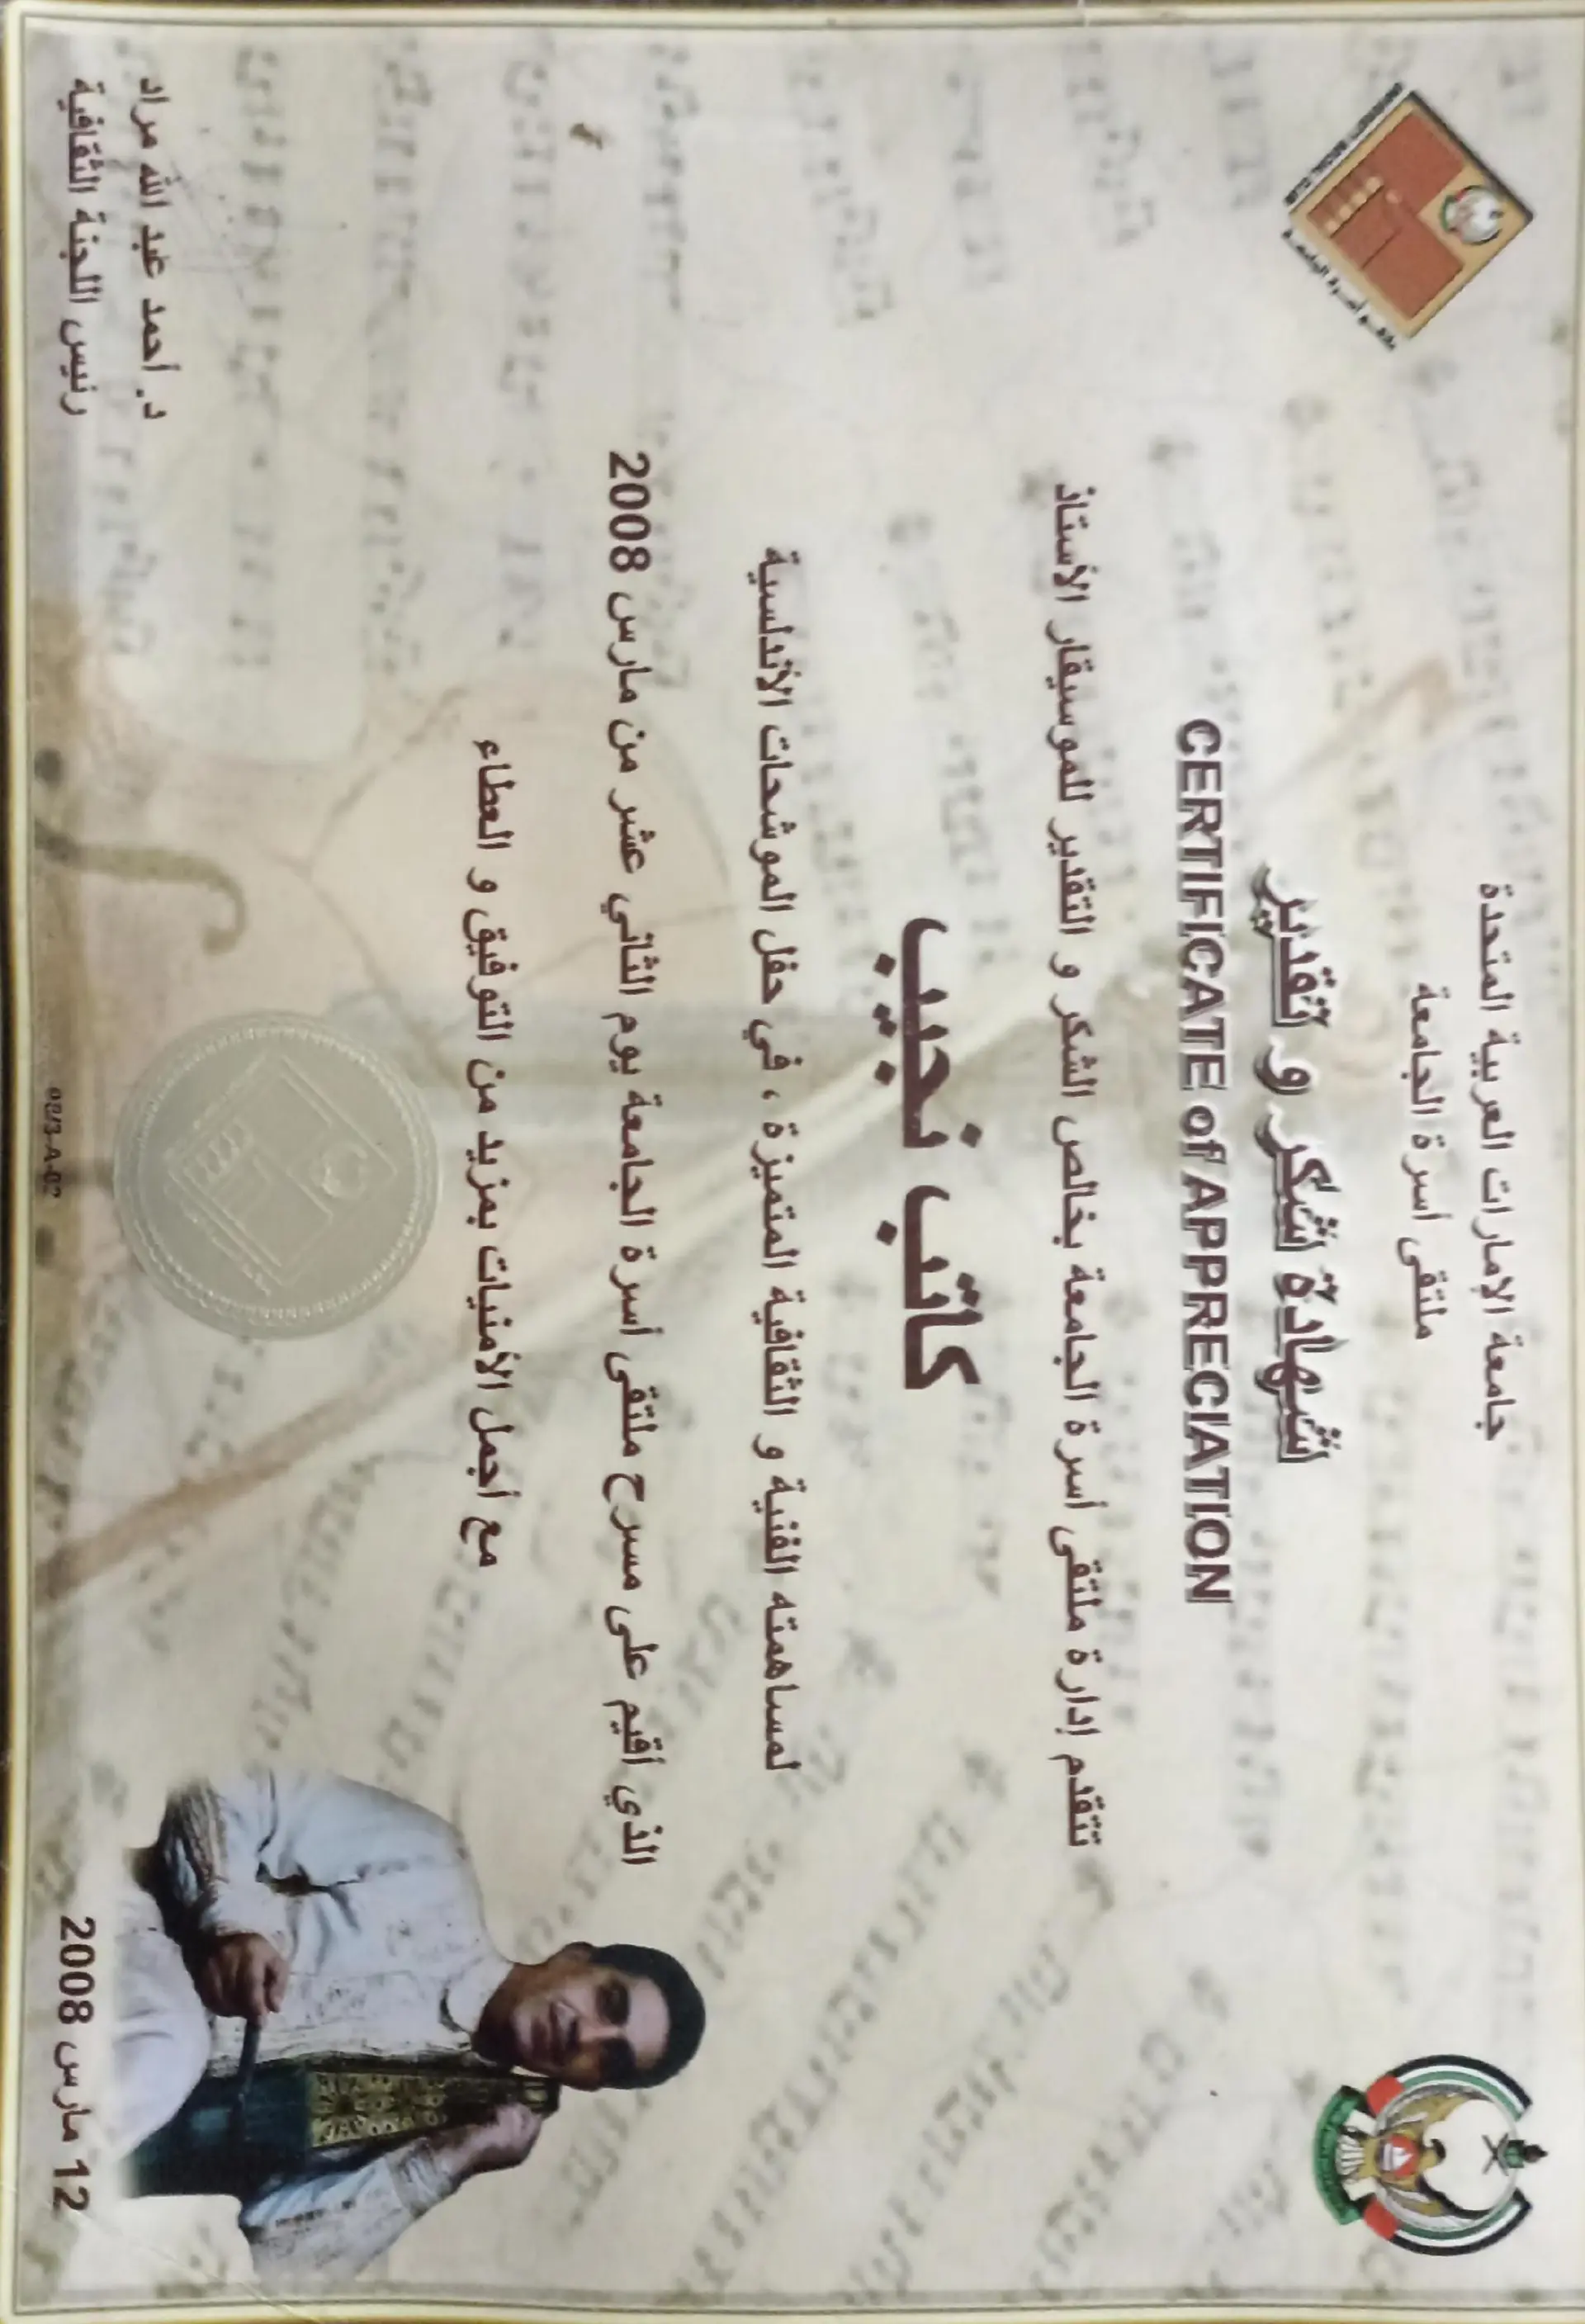 جامعة الإمارات العربية المتحدة
ملتقى أسرة الجامعة
شهادة شكر و تقدير
CERTIFICATE of APPRECIATION
تتقدم إدارة ملتقى أسرة الجامعة بخالص الشكر و التقدير للموسيقار الأستاذ
كاتب نجيب
لمساهمته الفنية و الثقافية المتميزة ، في حفل الموشحات الأندلسية
الذي أقيم على مسرح ملتقى أسرة الجامعة يوم الثاني عشر من مارس 2008
مع أجمل الأمنيات بمزيد من التوفيق و العطاء
د. أحمد عبد الله مراد
رئيس اللجنة الثقافية
12 مارس 2008
08/3-A-02